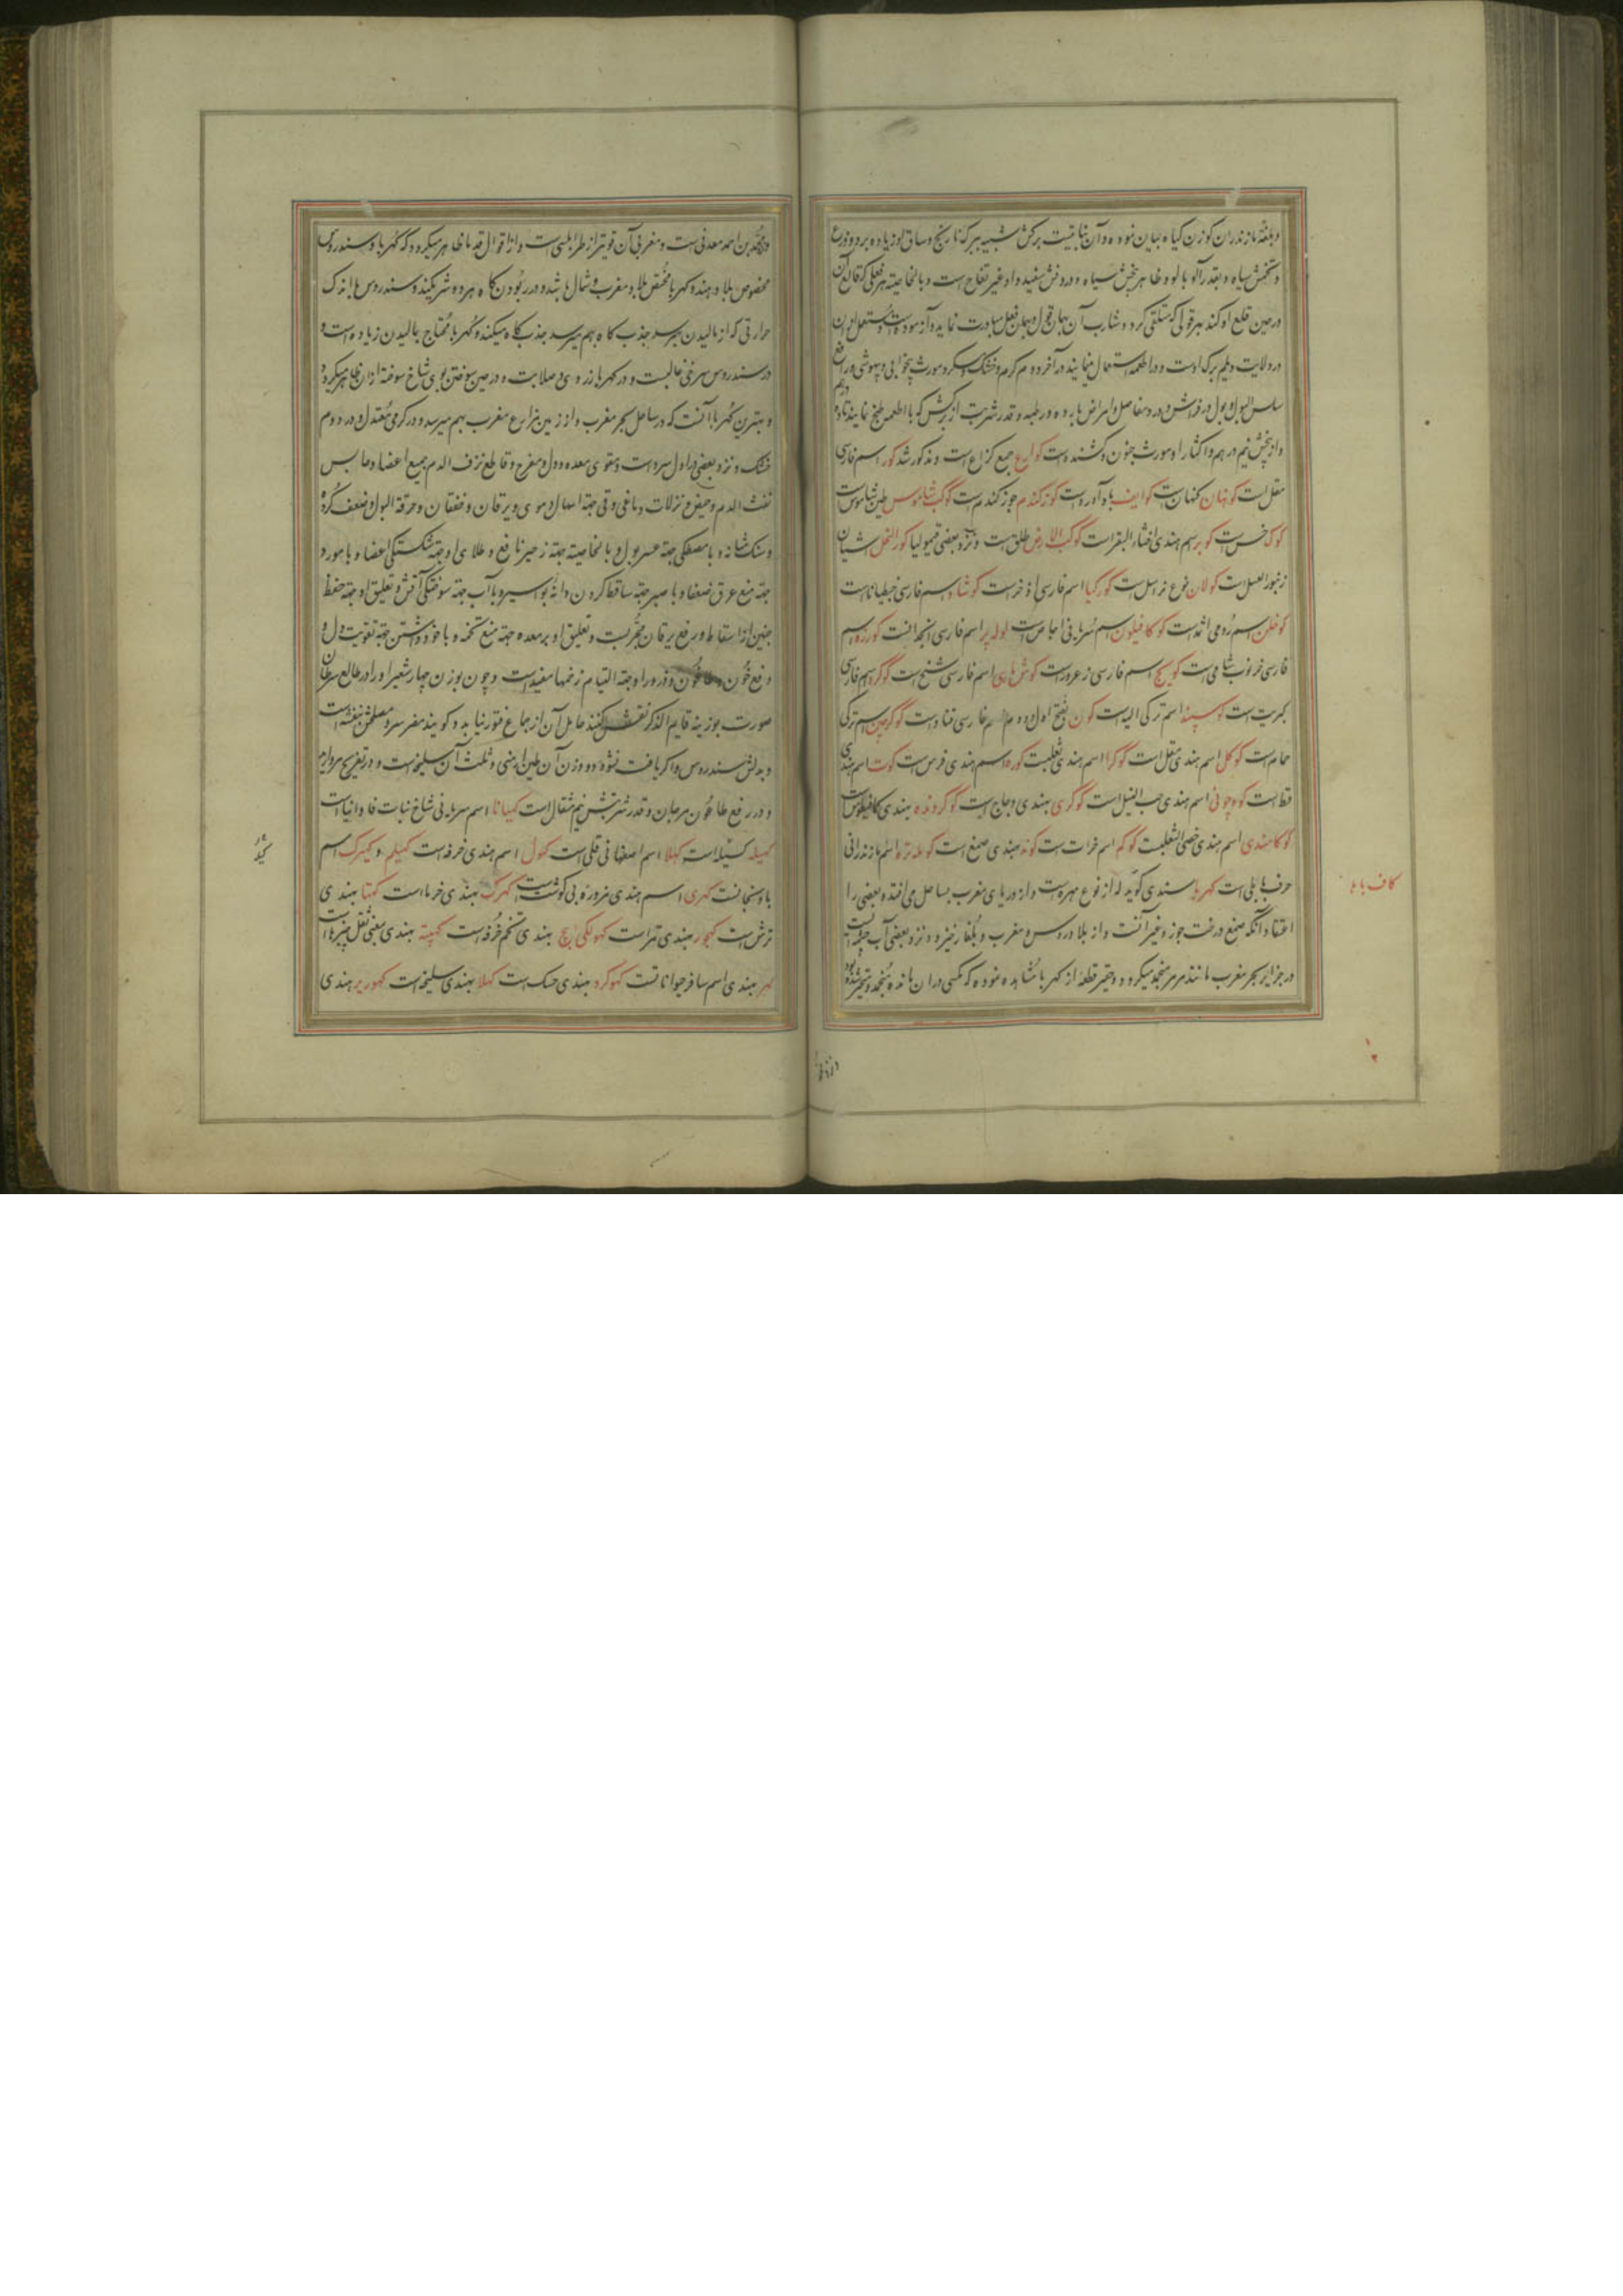 و بلغة مازندران کوزن کیاه بیان نموده و آن نباتیست برکش شبیه ببرک نارنج و ساق او زیاده بر دو ذرع
و تخمش سیاه و بقدر آلو بالو و ظاهر بیخش سیاه و درونش سفید و او غیر تفاح است و بالخاصیته هر فعلی که قالع آن
در حین قلع او کند هر قولی که متکلم کردد شارب آن بهمان قول و بهمان فعل مبادرت نماید و آزموده است و مستعمل ازان
در ولایت دیلم برک اوست و در اطعمه استعمال مینمایند در آخر دوم کرم و خشک و مسکر و مورث بیخوابی و بیهوشی و رافع
سلس البول و بول در فراش و درد مفاصل و امراض بارده و رطبه و قدر شربت از برکش که با اطعمه طبخ نمایند تا دو درهم
و از بیخش نیم درهم و اکثار او مورث جنون و کشنده است کوارع جمع کراع است و مذکور شد کور اسم فارسی
مقل است کوبهان کنهان است کوایف باد آورد است کوزکندم جوز کندم است کوکب شاموس طین شاموس است
کوک خس است کوبر اسم هندی اخثاء البقر است کوکب الارض طلق است و نزد بعضی قیمولیا کور النحل آشیان
زنبور العسل است کولان نوع از اسل است کورکیا اسم فارسی اذخر است کوشاد اسم فارسی جنطیانا است
کوخلن اسم رومی اثمد است کوکافیلون اسم سریانی اجاص است کوله پر اسم فارسی انجدان است کورزه اسم
فارسی خرنوب شامی است کویج اسم فارسی زعرور است کوش ماهی اسم فارسی شنج است کوکرد اسم فارسی
کبریت است کوسپند اسم ترکی الیه است کون بفتح اول و دوم اسم فارسی قتاد است کوکرجین اسم ترکی
حمام است کوکل اسم هندی مقل است کوکرا اسم هندی ثعلبست کوره اسم هندی فرس است کوت اسم هندی
قط است اسم هندی حب النیل است کوکری بهندی دجاج است کوکرونده بهندی کمافیطوس است
کوکاهندی اسم هندی خصی الثعلبست کوکم اسم خراست کوند بهندی صمغ است اسم مازندرانی
حرف بابلی است کهربا سندی کوید که از نوع مهره است و از دریای مغرب بساحل می افتد و بعضی را
اعتقاد آنکه صمغ درخت جوز و غیر آنست و از بلاد روس و مغرب و بلغار خیزد و نزد بعضی آب چشمه ایست
در جزایر بحر مغرب مانند مرمر منجمد میکردد و حقیر قطعه از کهربا مشاهده نموده که مکسی در ان مانده منجمد و متحجر شده بود
کاف با ها
و محمد بن احمد معدنی است و مغربی آن قویتر از طرابلسی است و از اقوال قدما ظاهر میکردد که کهربا و سندروس
مخصوص بلاد هند و کهربا مختص بلاد مغرب و شمال باشد و در ربودن کاه هر دو شریکند و سندروس باندک
حرارتی که از مالیدن بهم رسد جذب کاه میکند و کهربا محتاج بمالیدن زیاده است و
در سندروس سرخی غالبست و در کهربا زردی و صلابت و در حین سوختن بوی شاخ سوخته از ان ظاهر میکردد
و بهترین کهربا آنست که در ساحل بحر مغرب و از زمین مزارع مغرب بهم میرسد و در کرمی معتدل و در دوم
خشک و نزد بعضی در اول سرد است و مقوی معده و دل و مفرح و قاطع نزف الدم جمیع اعضا و حابس
نفث الدم و حیض و نزلات دماغی و قی جهة اسهال دموی و یرقان و خفقان و حرقة البول و ضعف کرده
و سنک مثانه و با مصطکی جهة عسر بول و بالخاصیته جهة زحیر نافع و طلای او جهة شکستکی اعضا و با مورد
جهة منع عرق ضعفا و با صبر جهة ساقط کردن دانه بواسیر و با آب جهة سوختکی آتش و تعلیق او جهة حفظ
جنین از اسقاط و رفع یرقان مجربست و تعلیق او بر معده جهة منع تخمه و با خود داشتن جهة تقویت دل و
رفع خون و طاعون و ذرور او جهة التیام زخمها مفید است و چون بوزن چهار شعیر او را در طالع سرطان
صورت بوزینه قایم الذکر نقش کنند حامل آن از جماع فتور نیابد و کویند مضر سر و مصلحش بنفشه است
و بدلش سندروس و اکر یافت نشود دو وزن آن طین ارمنی و ثلث آن سلیخه است و در تفریح مروارید
و در رفع طاعون مرجان و قدر شربتش نیم مثقال است کهیانا اسم سریانی شاخ نبات فاوانیا است
کهیله کسیلا است کهلا اسم اصفهانی قلی است کهول اسم هندی خرفه است کهیلم و کهیرک اسم
بادنجانست کهری اسم هندی مزوره بی کوشت است کهرک بهندی خرما است کهتا بهندی
ترش است کهجور بهندی تمر است کهولکی بیج بهندی تخم خرفه است کهپته بهندی یعنی ثفل چیزها است
کهر بهندی اسم سافر حیوانا تست کهوکرو بهندی حسک است کهلا بهندی سلیخه است کهوربر هندی